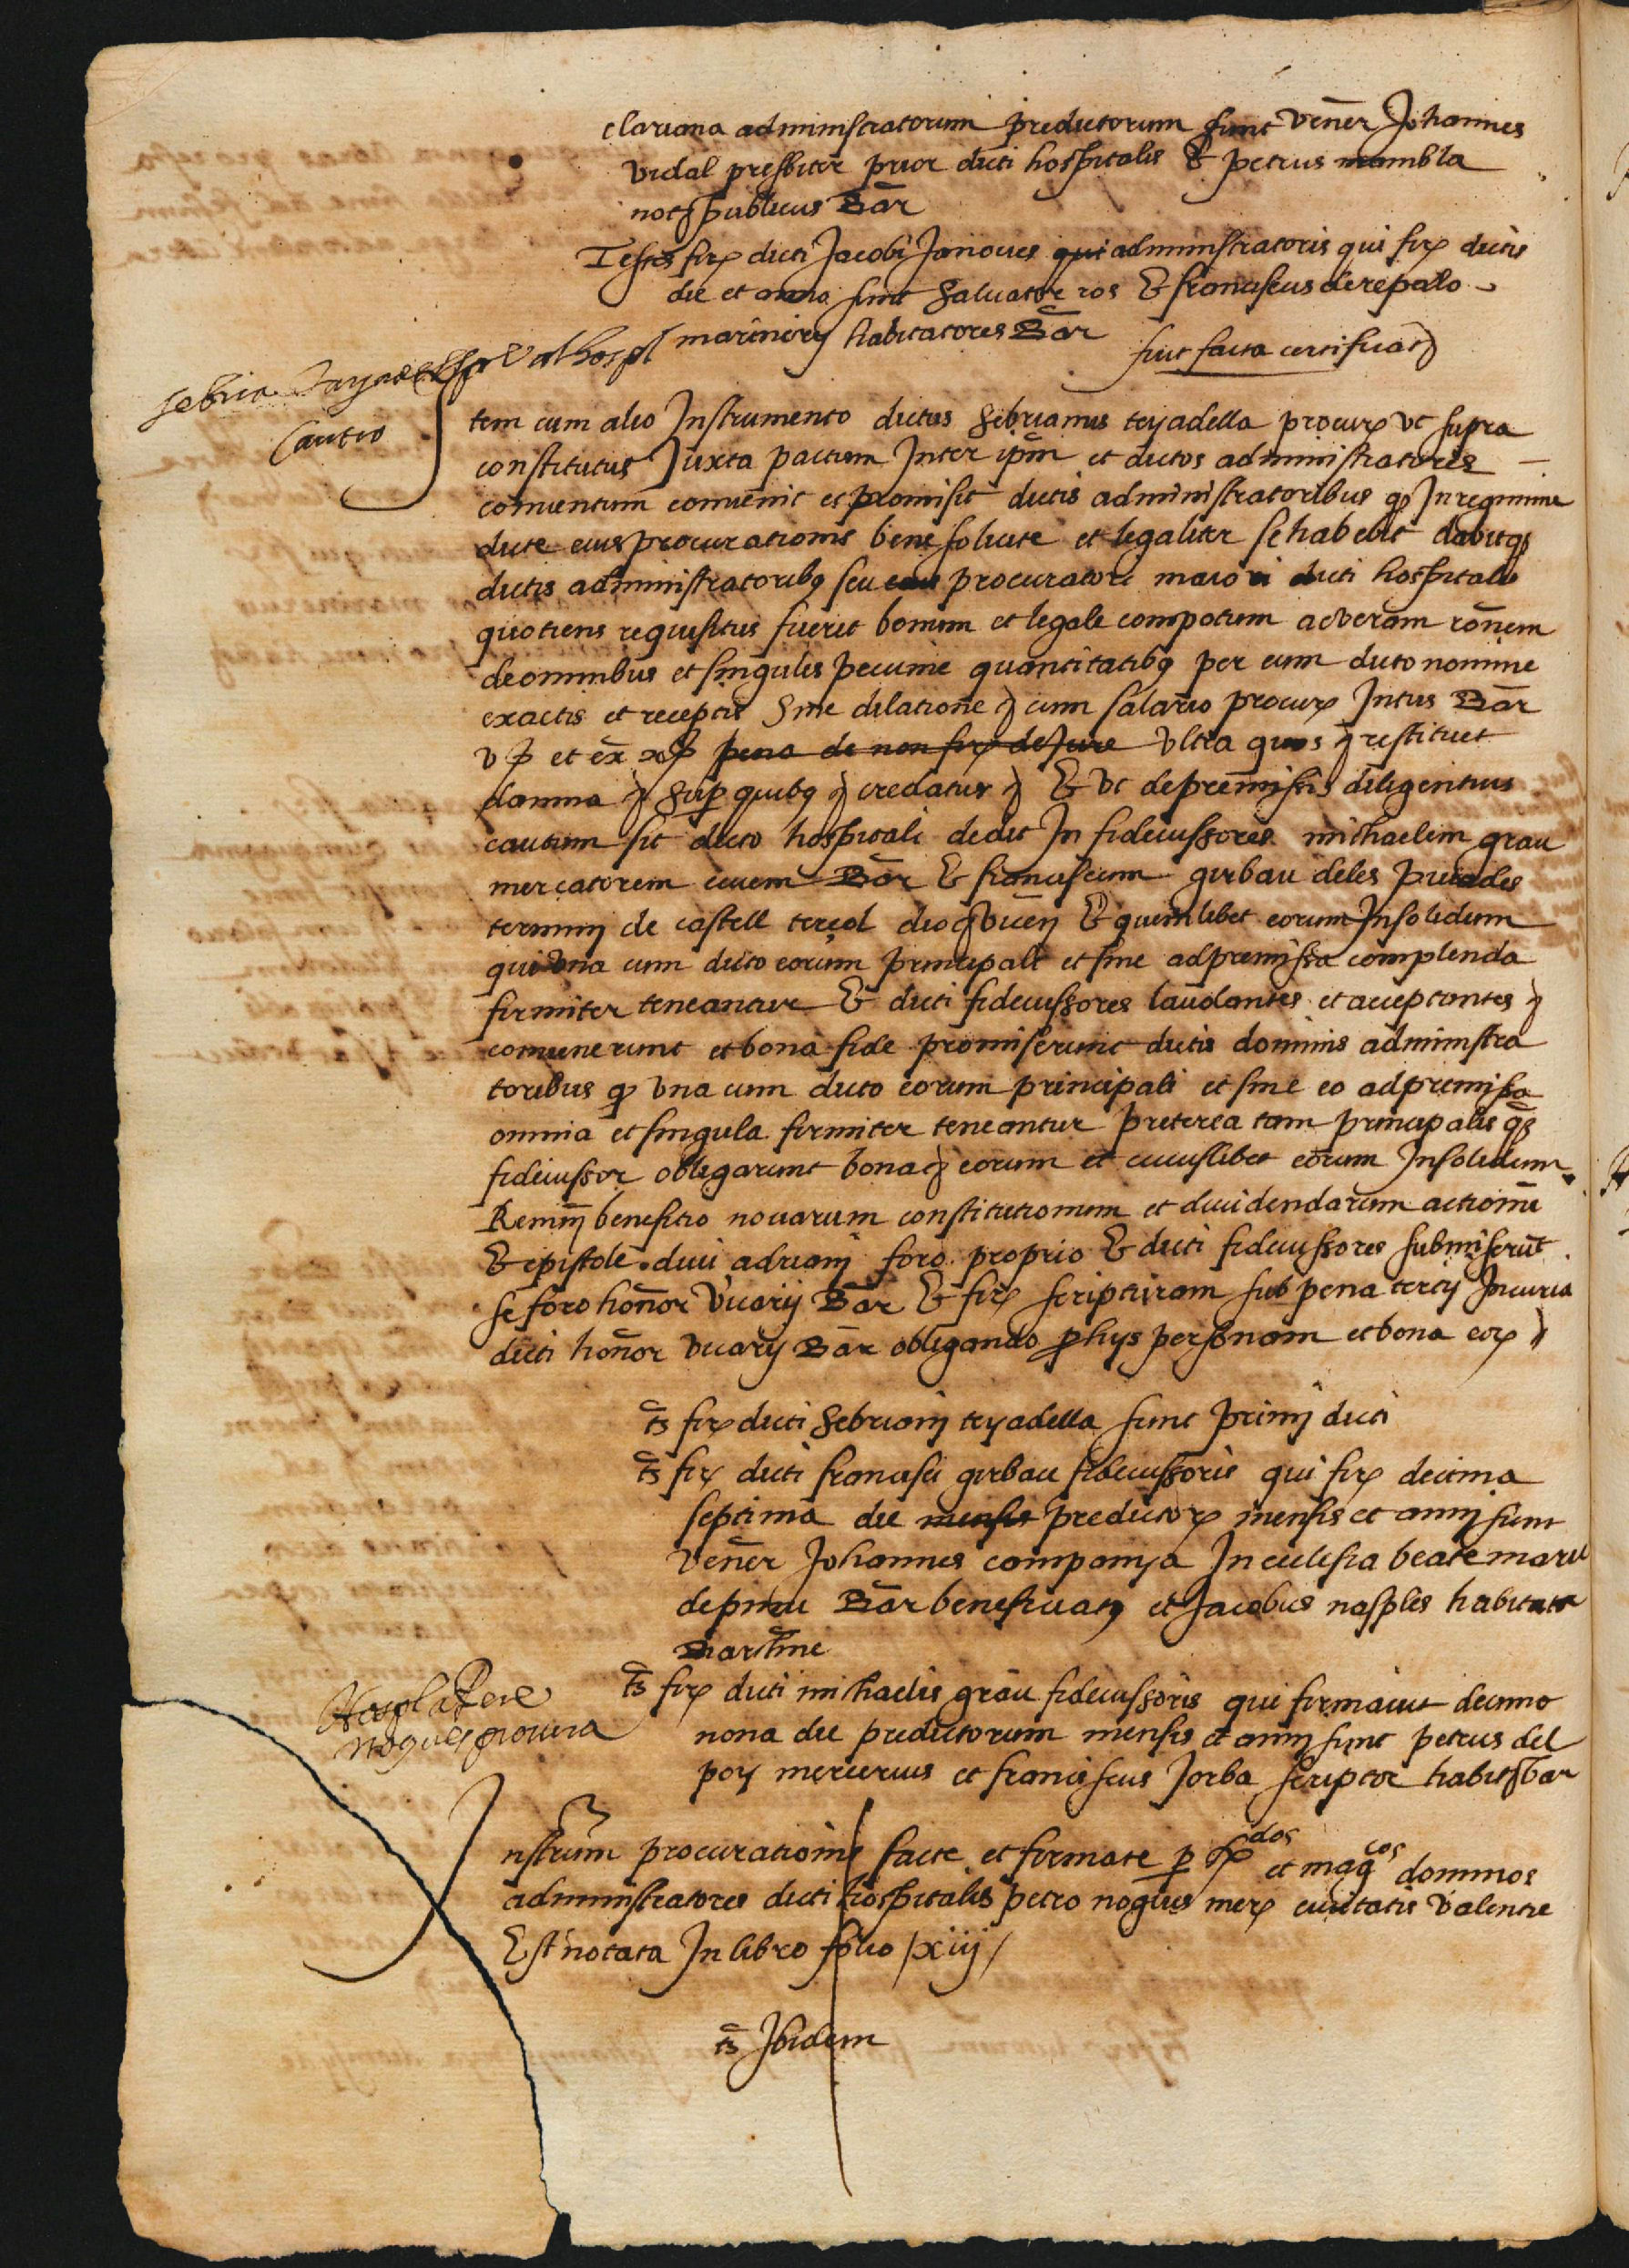 clariana administratorum predictorum sunt vener Johannes
vidal presbiter prior dicti hospitalis & petrus mombla
not publicus Bar
Testes fir dicti Jacobi Janoves qui administratoris qui fir dictis
die et anno sunt Saluator ros & franciscus de repalo
marinerij habitatores Bar
fuit facta certificat
Sebria tayadella al hospl
Cautio
Item cum alio Instrumento dictus Sebrianus teyadella procur vt supra
constitutus Juxta pactum Inter ipm et dictos administratores
conuentum conuenit et promisit dictis administratoribus q Inregimine
dicte eius procurationis bene solicite et legaliter se habebit dabitq
dictis administratoribq seu procuratori maiori dicti hospitalis
quotiens requisitus fuerit bonum et legale compotum ac veram ronem
de omnibus et singulis pecunie quantitatibq per eum dicto nomine
exactis et receptis Sine dilatione cum salario procur Intus Bar
v s et ex x s pena de non fir de Jure Vltra quos restituet
damna Sup quibq credatur & vt de premissis diligentius
cautum sit dicto hospitali dedit In fideiussores michaelem grau
mercatorem ciuem Bar & franciscum girbau deles piuades
termini de castell terçol dioc vicen & quemlibet eorum Insolidum
qui vna cum dicto eorum principali et sine ad premissa complenda
firmiter teneantur & dicti fideiussores laudantes et acceptantes
conuenerunt et bona fide promiserunt dictis dominis administra
toribus q vna cum dicto eorum principali et sine eo ad premissa
omnia et singula firmiter teneantur preterea tam principalis q
fideiussor obligarunt bona eorum et cuiuslibet eorum Insolidum
Renun benefitio nouarum constitutionum et diuidendarum actionum
& epistole diui adriani foro proprio & dicti fideiussores submiserut
se foro honor vicarij Bar & fir scripturam sub pena tercij In curia
dicti honor vicarij Bar obligando p hijs personam et bona eor
ts fir dicti Sebriani teyadella sunt primi dicti
ts fir dicti francisci girbau fideiussoris qui fir decima
septima die mensis predictor mensis et anni sunt
vener Johannes companya In ecclesia beate marie
de pinu Bar benefitiat et Jacobus nasples habitator
Barchine
ts fir dicti michaelis grau fideiussoris qui firmauit decimo
nona die predictorum mensis et anni sunt petrus del
poy mercerius et franciscus Jorba scriptor habit bar
Pere
nogues procura
Instrum procurationis facte et firmate p Rdos et magcos dominos
administratores dicti hospitalis petro nogues mer ciuitatis valentie
Est notata In libro folio /xiij/
ts Ibidem